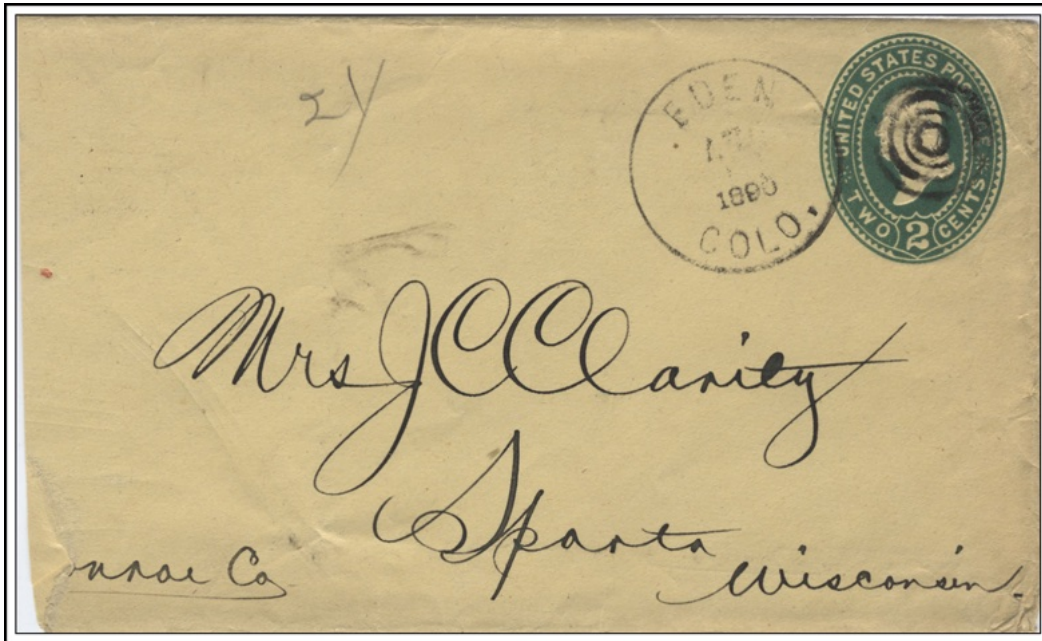 EDEN
1890
COLO.
UNITED STATES POSTAGE
TWO 2 CENTS
Mrs J C Clarity
Sparta
onroe Co
Wisconsin.